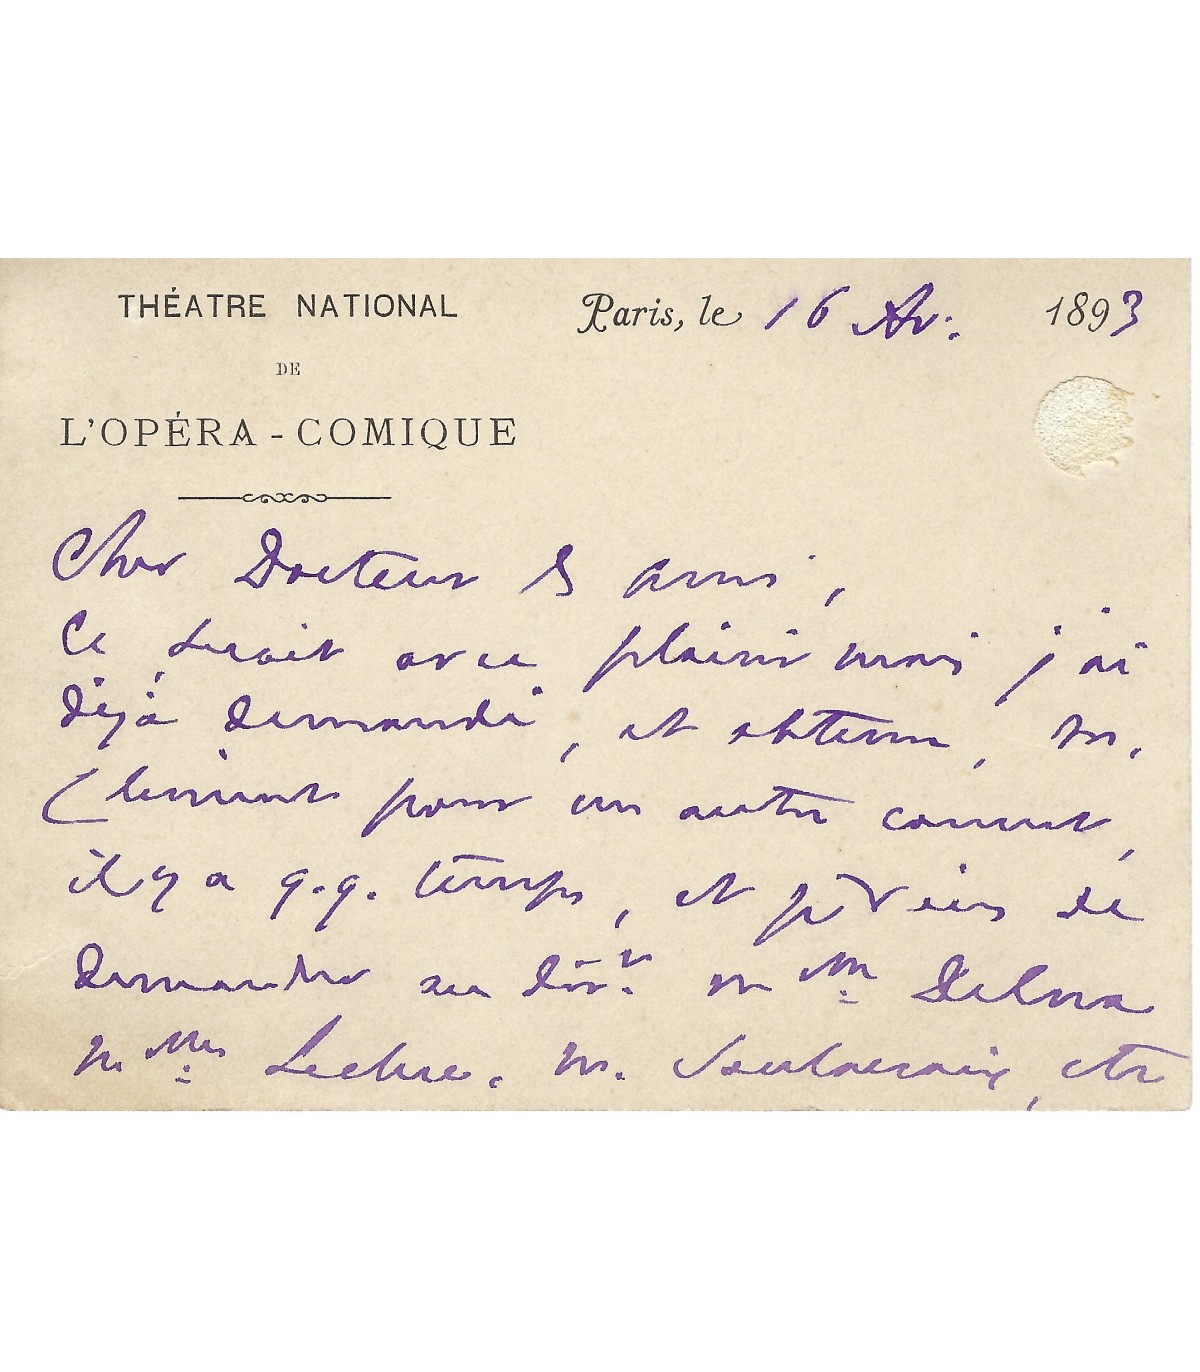 THÉATRE NATIONAL
DE
L'OPÉRA-COMIQUE
Paris, le 16 Av. 1893
Cher Docteur & ami,
Ce serait avec plaisir mais j'ai
déjà demandé, et obtenu, M.
Clément pour un autre concert,
il y a q.q. temps, et je viens de
demander au dir.r Mlle Delna
Mlle Leclerc. M. Soulacroix, etc